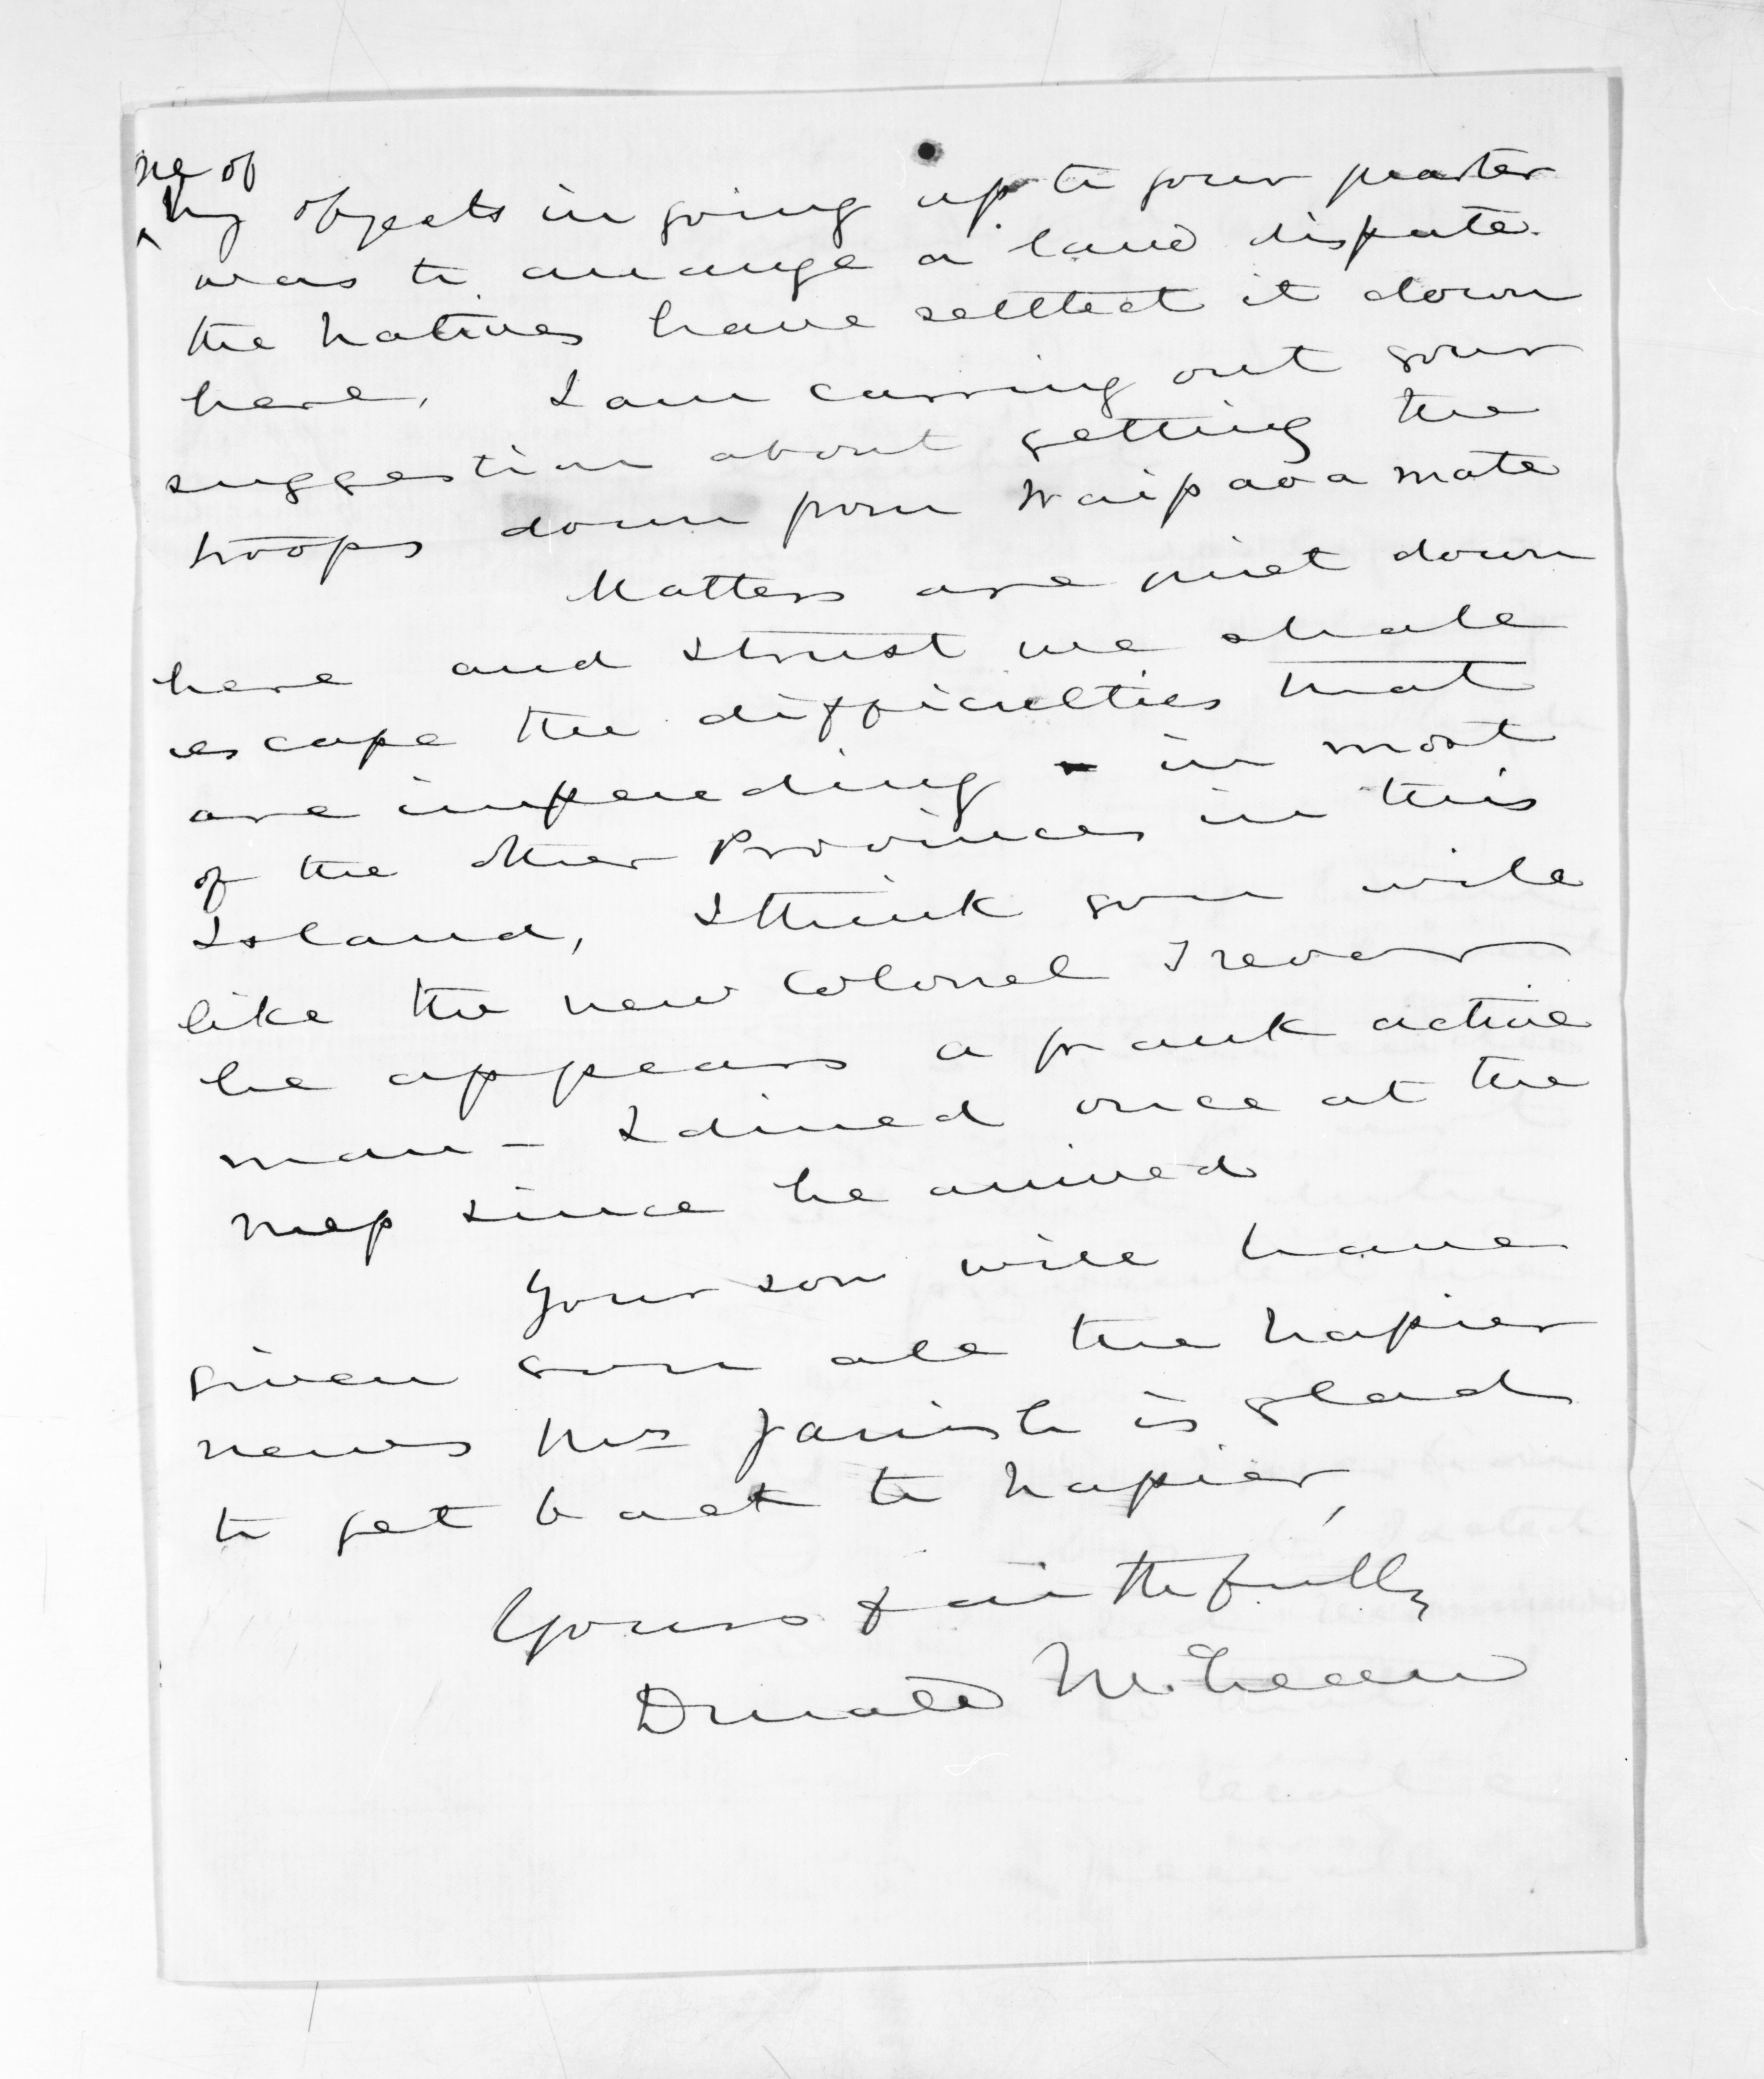 ne of
my objects in going up to your quarter
was to arrange a land dispute.
the natives have settled it down
here, I am carring out your
suggestion about getting the
troops down from Waipaoa mate
Matters are quiet down
here and I trust we shale
escape the difficulties that
are impending in most
of the other Provinces in this
Island, I think you will
like the new Colonel Trevor
he appears a frank active
man - I dined once at the
mep since he arrived
Your son will have
given you all the Napier
news Mrs Parrish is glad
to get back to Napier,
Yours faithfully
Donald McLean